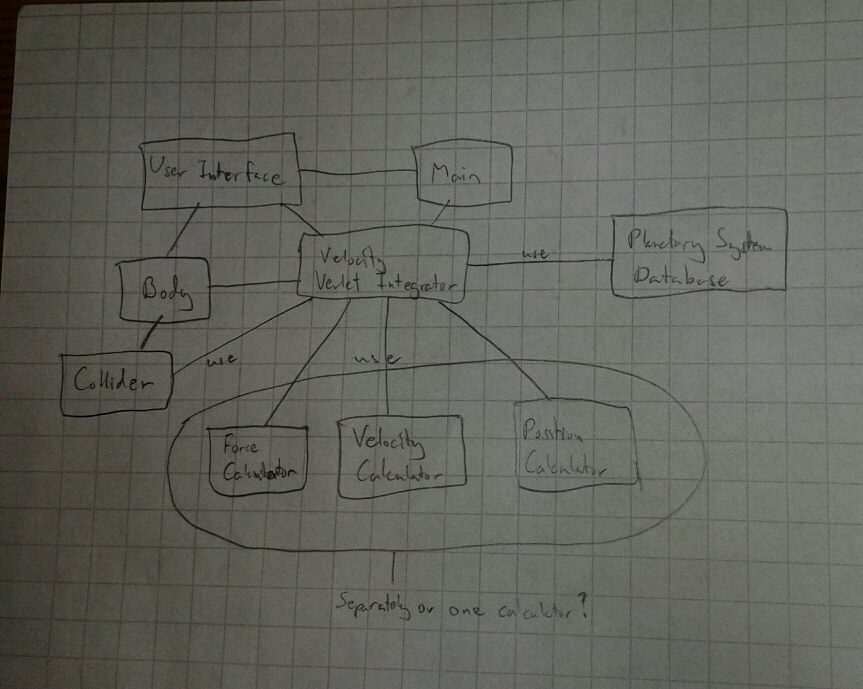 User Interface
Main
Velocity
Verlet Integrator
use
Planetary System
Database
Body
Collider
use
use
Force
Calculator
Velocity
Calculator
Position
Calculator
Separately or one calculator?